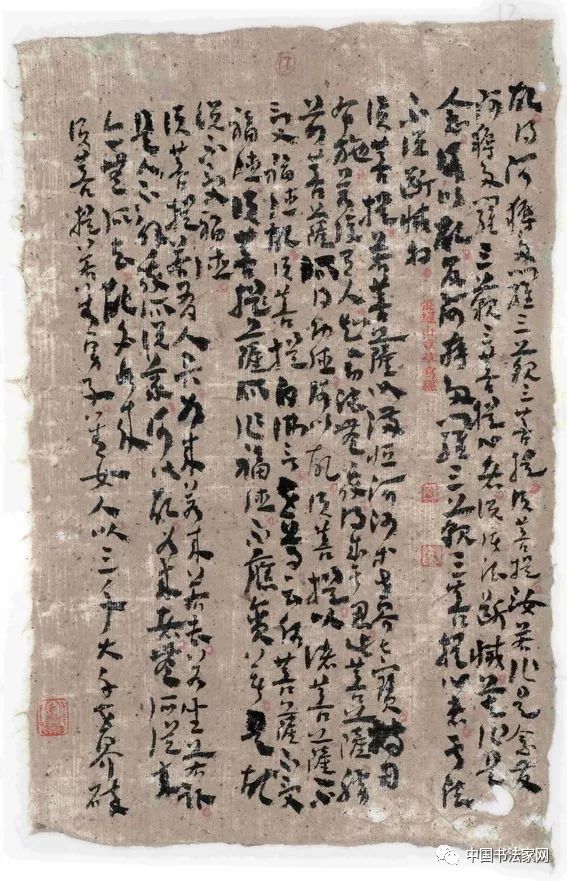 故得阿耨多羅三藐三菩提須菩提汝若作是念發
阿耨多羅三藐三菩提心者說諸法斷滅莫作是
念何以故發阿耨多羅三藐三菩提心者於法
不說斷滅相
須菩提若菩薩以滿恒河沙等世界七寶持用
布施若復有人知一切法無我得成於忍此菩薩勝
前菩薩所得功德何以故須菩提以諸菩薩不
受福德故須菩提白佛言世尊云何菩薩不受
福德須菩提菩薩所作福德不應貪著是故
說不受福德
須菩提若有人言如來若來若去若坐若臥
是人不解我所說義何以故如來者無所從來
亦無所去故名如來
須菩提若善男子善女人以三千大千世界碎
張耀山章草寫經
17
中国书法家网